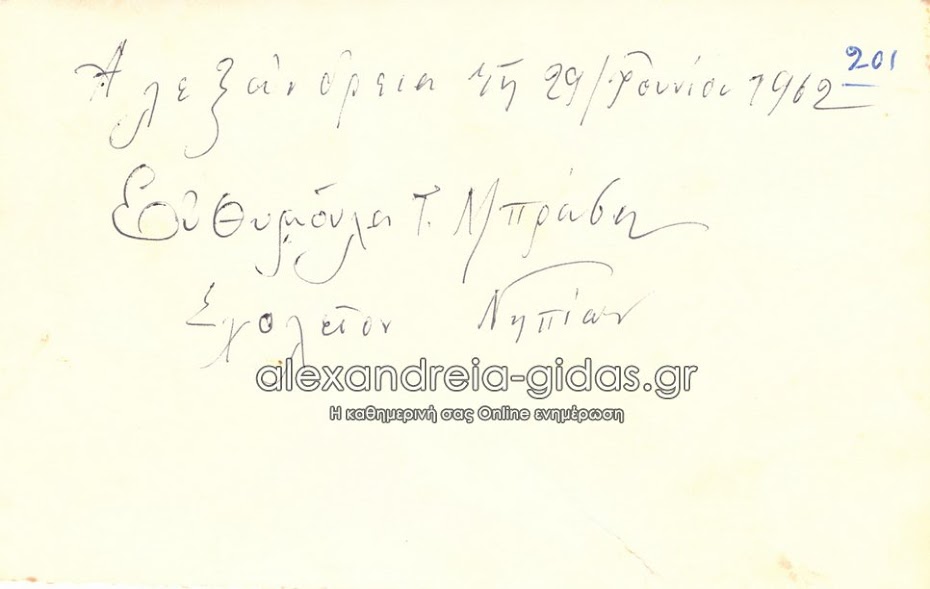 201
Ἀλεξάνδρεια τῇ 29/Ἰουνίου 1962
Εὐθυμούλα Τ. Μπράβη
Σχολεῖον Νηπίων
alexandreia-gidas.gr
Η καθημερινή σας Online ενημέρωση